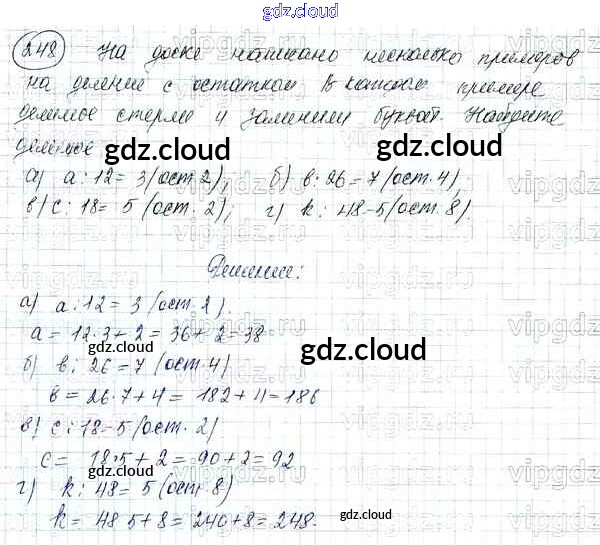 gdz.cloud
gdz.cloud
248 На доске написано несколько примеров
на деление с остатком В каждом примере
делимое стерли и заменили буквой. Найдите
делимое
gdz.cloud gdz.cloud
а) a:12= 3(ост.2), б) в:26=7(ост.4),
в) c:18= 5 (ост. 2), г) k: 48-5(ост.8).
Решение:
а) a:12= 3 (ост.2).
a= 12·3+2=36+2=38
gdz.cloud gdz.cloud
б) в:26=7 (ост.4)
в=26·7+4=182+4=186
в) c:18-5(ост.2)
c= 18·5+2=90+2=92
gdz.cloud
г) k:48= 5 (ост.8)
k= 48 5+8=240+8=248.
gdz.cloud